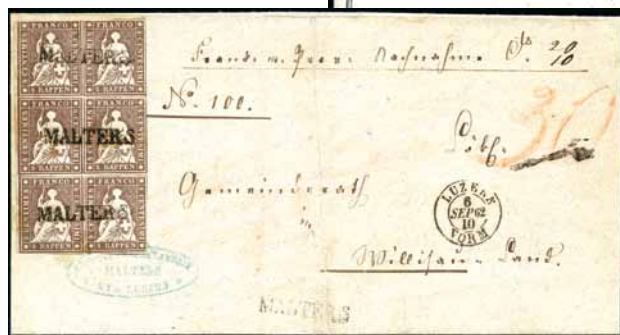 FRANCO FRANCO
MALTERS
5 RAPPEN 5 RAPPEN
FRANCO FRANCO
MALTERS
5 RAPPEN 5 RAPPEN
FRANCO FRANCO
MALTERS
5 RAPPEN 5 RAPPEN
Nachnahme Cts 20
10
No. 100.
30
Gemeinderath
in
LUZERN
6
SEP 62
10
VORM
Willisau-Land.
MALTERS
LUZERN
MALTERS